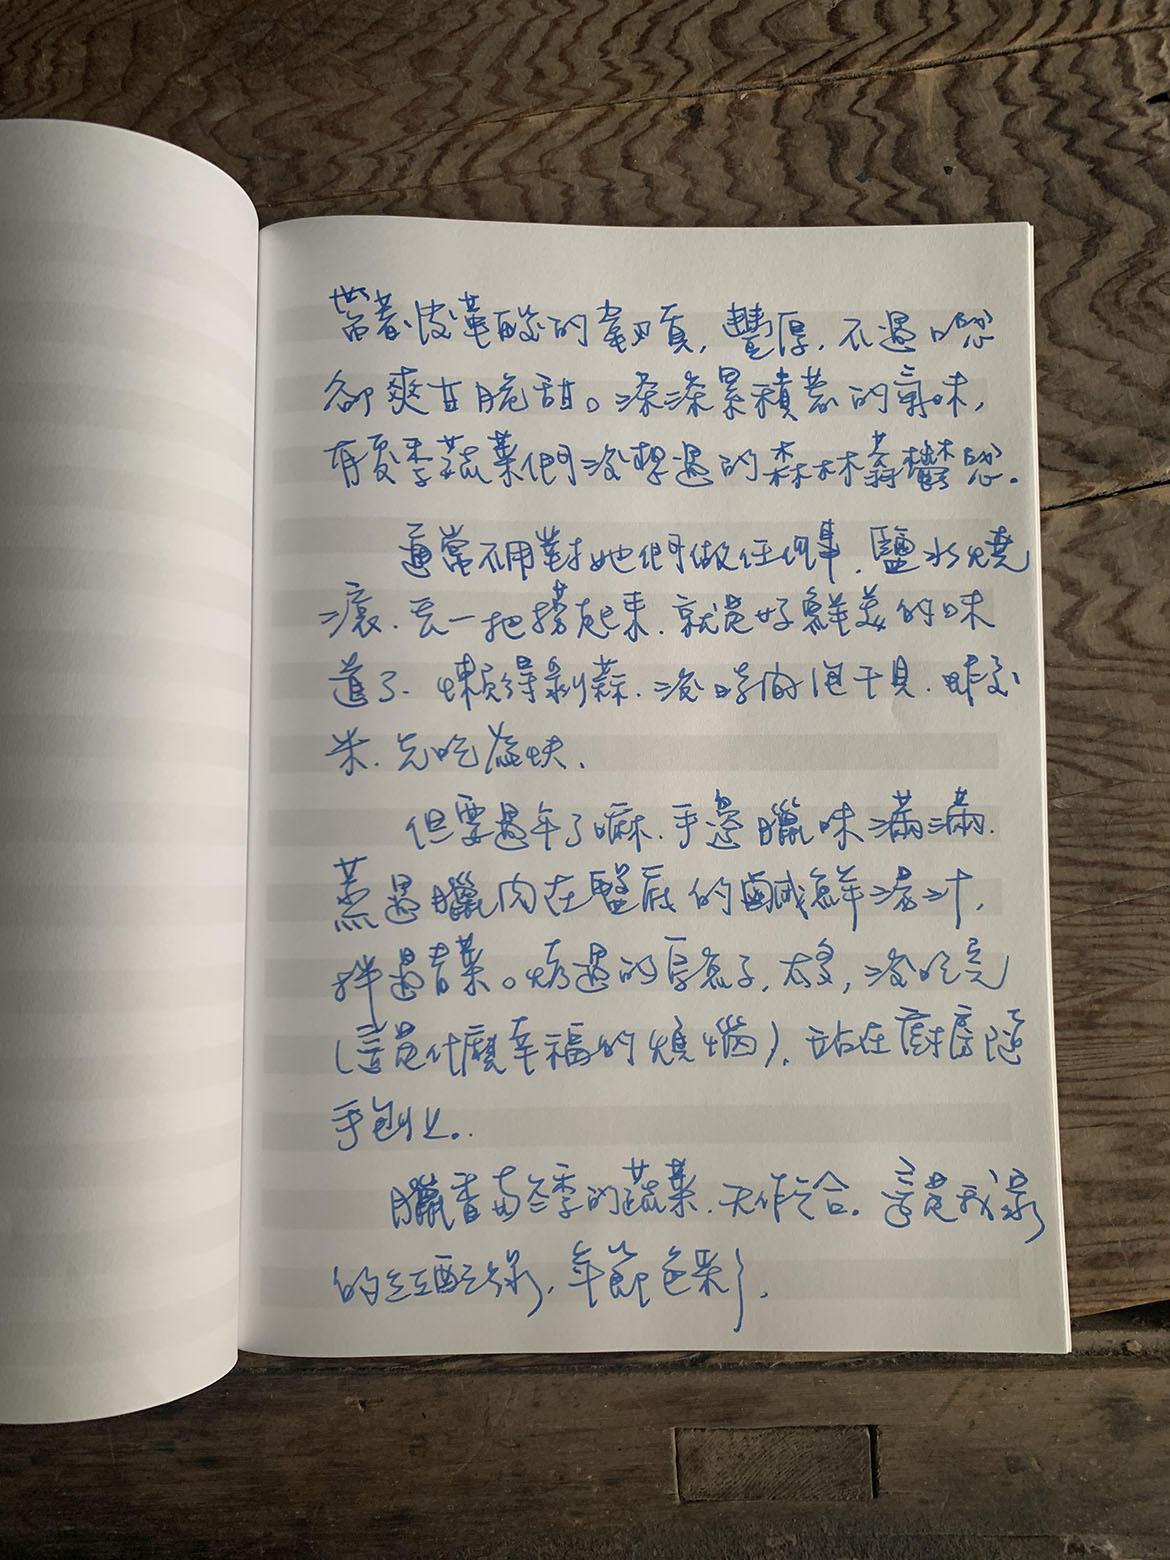 帶著皮革酸的韌質,豐厚,不過呢
卻爽甘脆甜。深深累積著的氣味,
有夏季蔬菜們沒想過的森林蓊鬱感。
通常不用對她們做任何事,鹽水燒
滾,丟一把撈起來,就是好鮮美的味
道了,懶得剝蒜,沒時間泡干貝,蝦
米,先吃盤快,
但要過年了嘛,手邊臘味滿滿,
蒸過臘肉在盤底的鹹鮮湯汁,
拌過青菜。烤過的烏魚子,太多,沒吃完
(這是什麼幸福的煩惱),站在廚房隨
手包出。
臘香與冬季的蔬菜,天作之合。這是我家
的紅配綠,年節色彩,